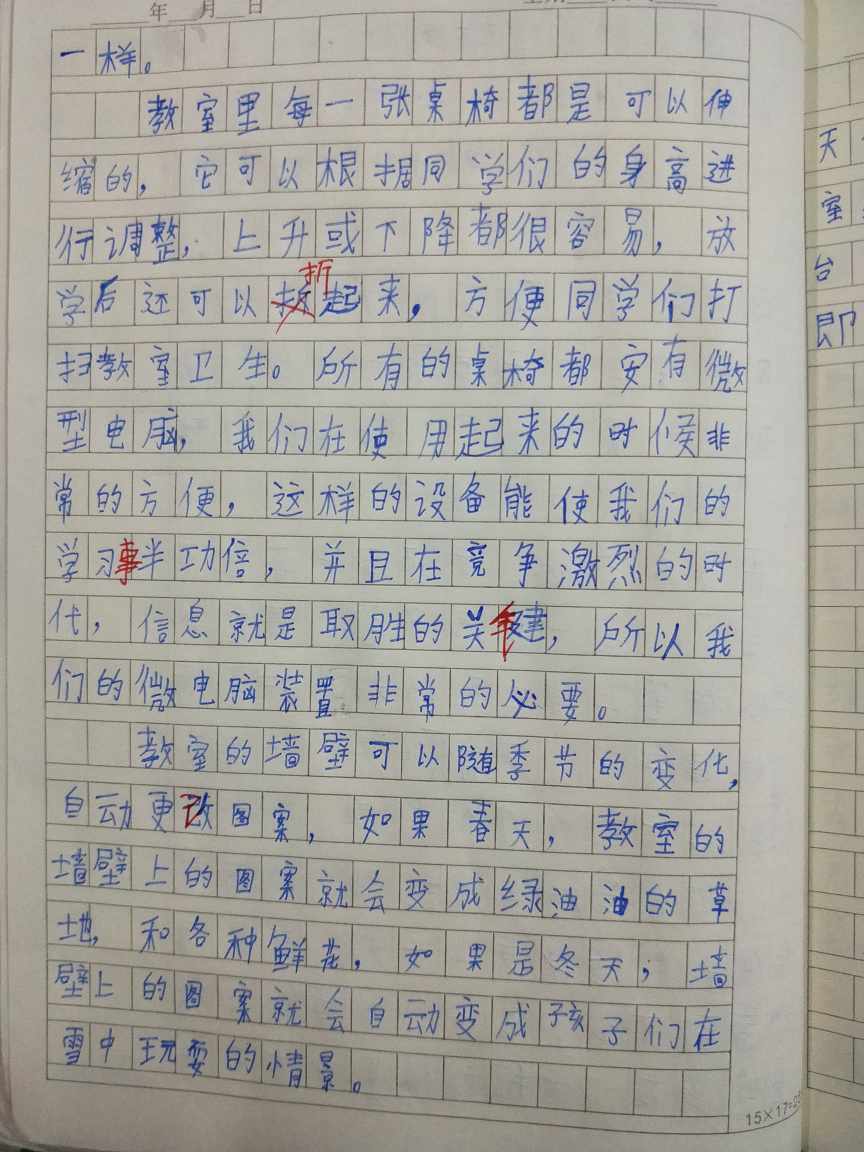 年 月 日
一样。
教室里每一张桌椅都是可以伸
缩的，它可以根据同学们的身高进
行调整，上升或下降都很容易，放
折
学后还可以起来，方便同学们打
扫教室卫生。所有的桌椅都安有微
型电脑，我们在使用起来的时候非
常的方便，这样的设备能使我们的
学习事半功倍，并且在竞争激烈的时
代，信息就是取胜的关键，所以我
们的微电脑装置非常的必要。
教室的墙壁可以随季节的变化，
自动更改图案，如果春天，教室的
墙壁上的图案就会变成绿油油的草
地，和各种鲜花，如果是冬天，墙
壁上的图案就会自动变成孩子们在
雪中玩耍的情景。
15×17=2
天
室
台
即